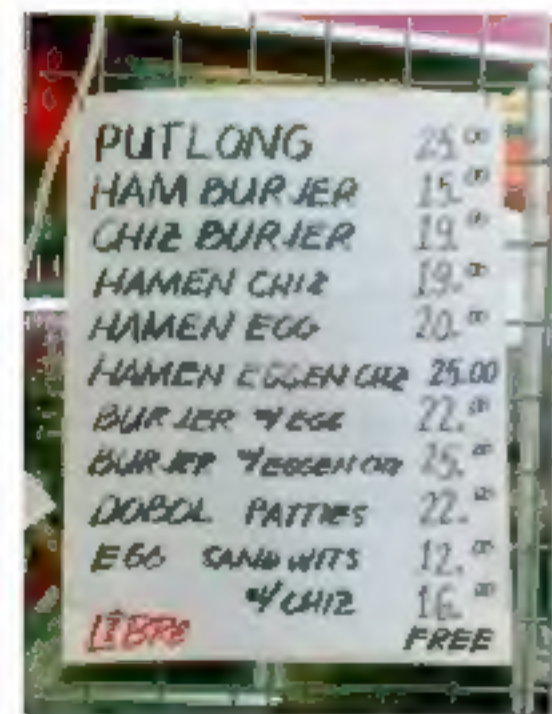 PUTLONG 25.00
HAM BURJER 15.00
CHIZ BURJER 19.00
HAMEN CHIZ 19.00
HAMEN EGG 20.00
HAMEN EGGEN CHIZ 25.00
BURJER W/ EGG 22.00
BURJER W/ EGGEN CHIZ 25.00
DOBOL PATTIES 22.00
EGG SANDWITS 12.00
W/ CHIZ 16.00
LIBRE FREE